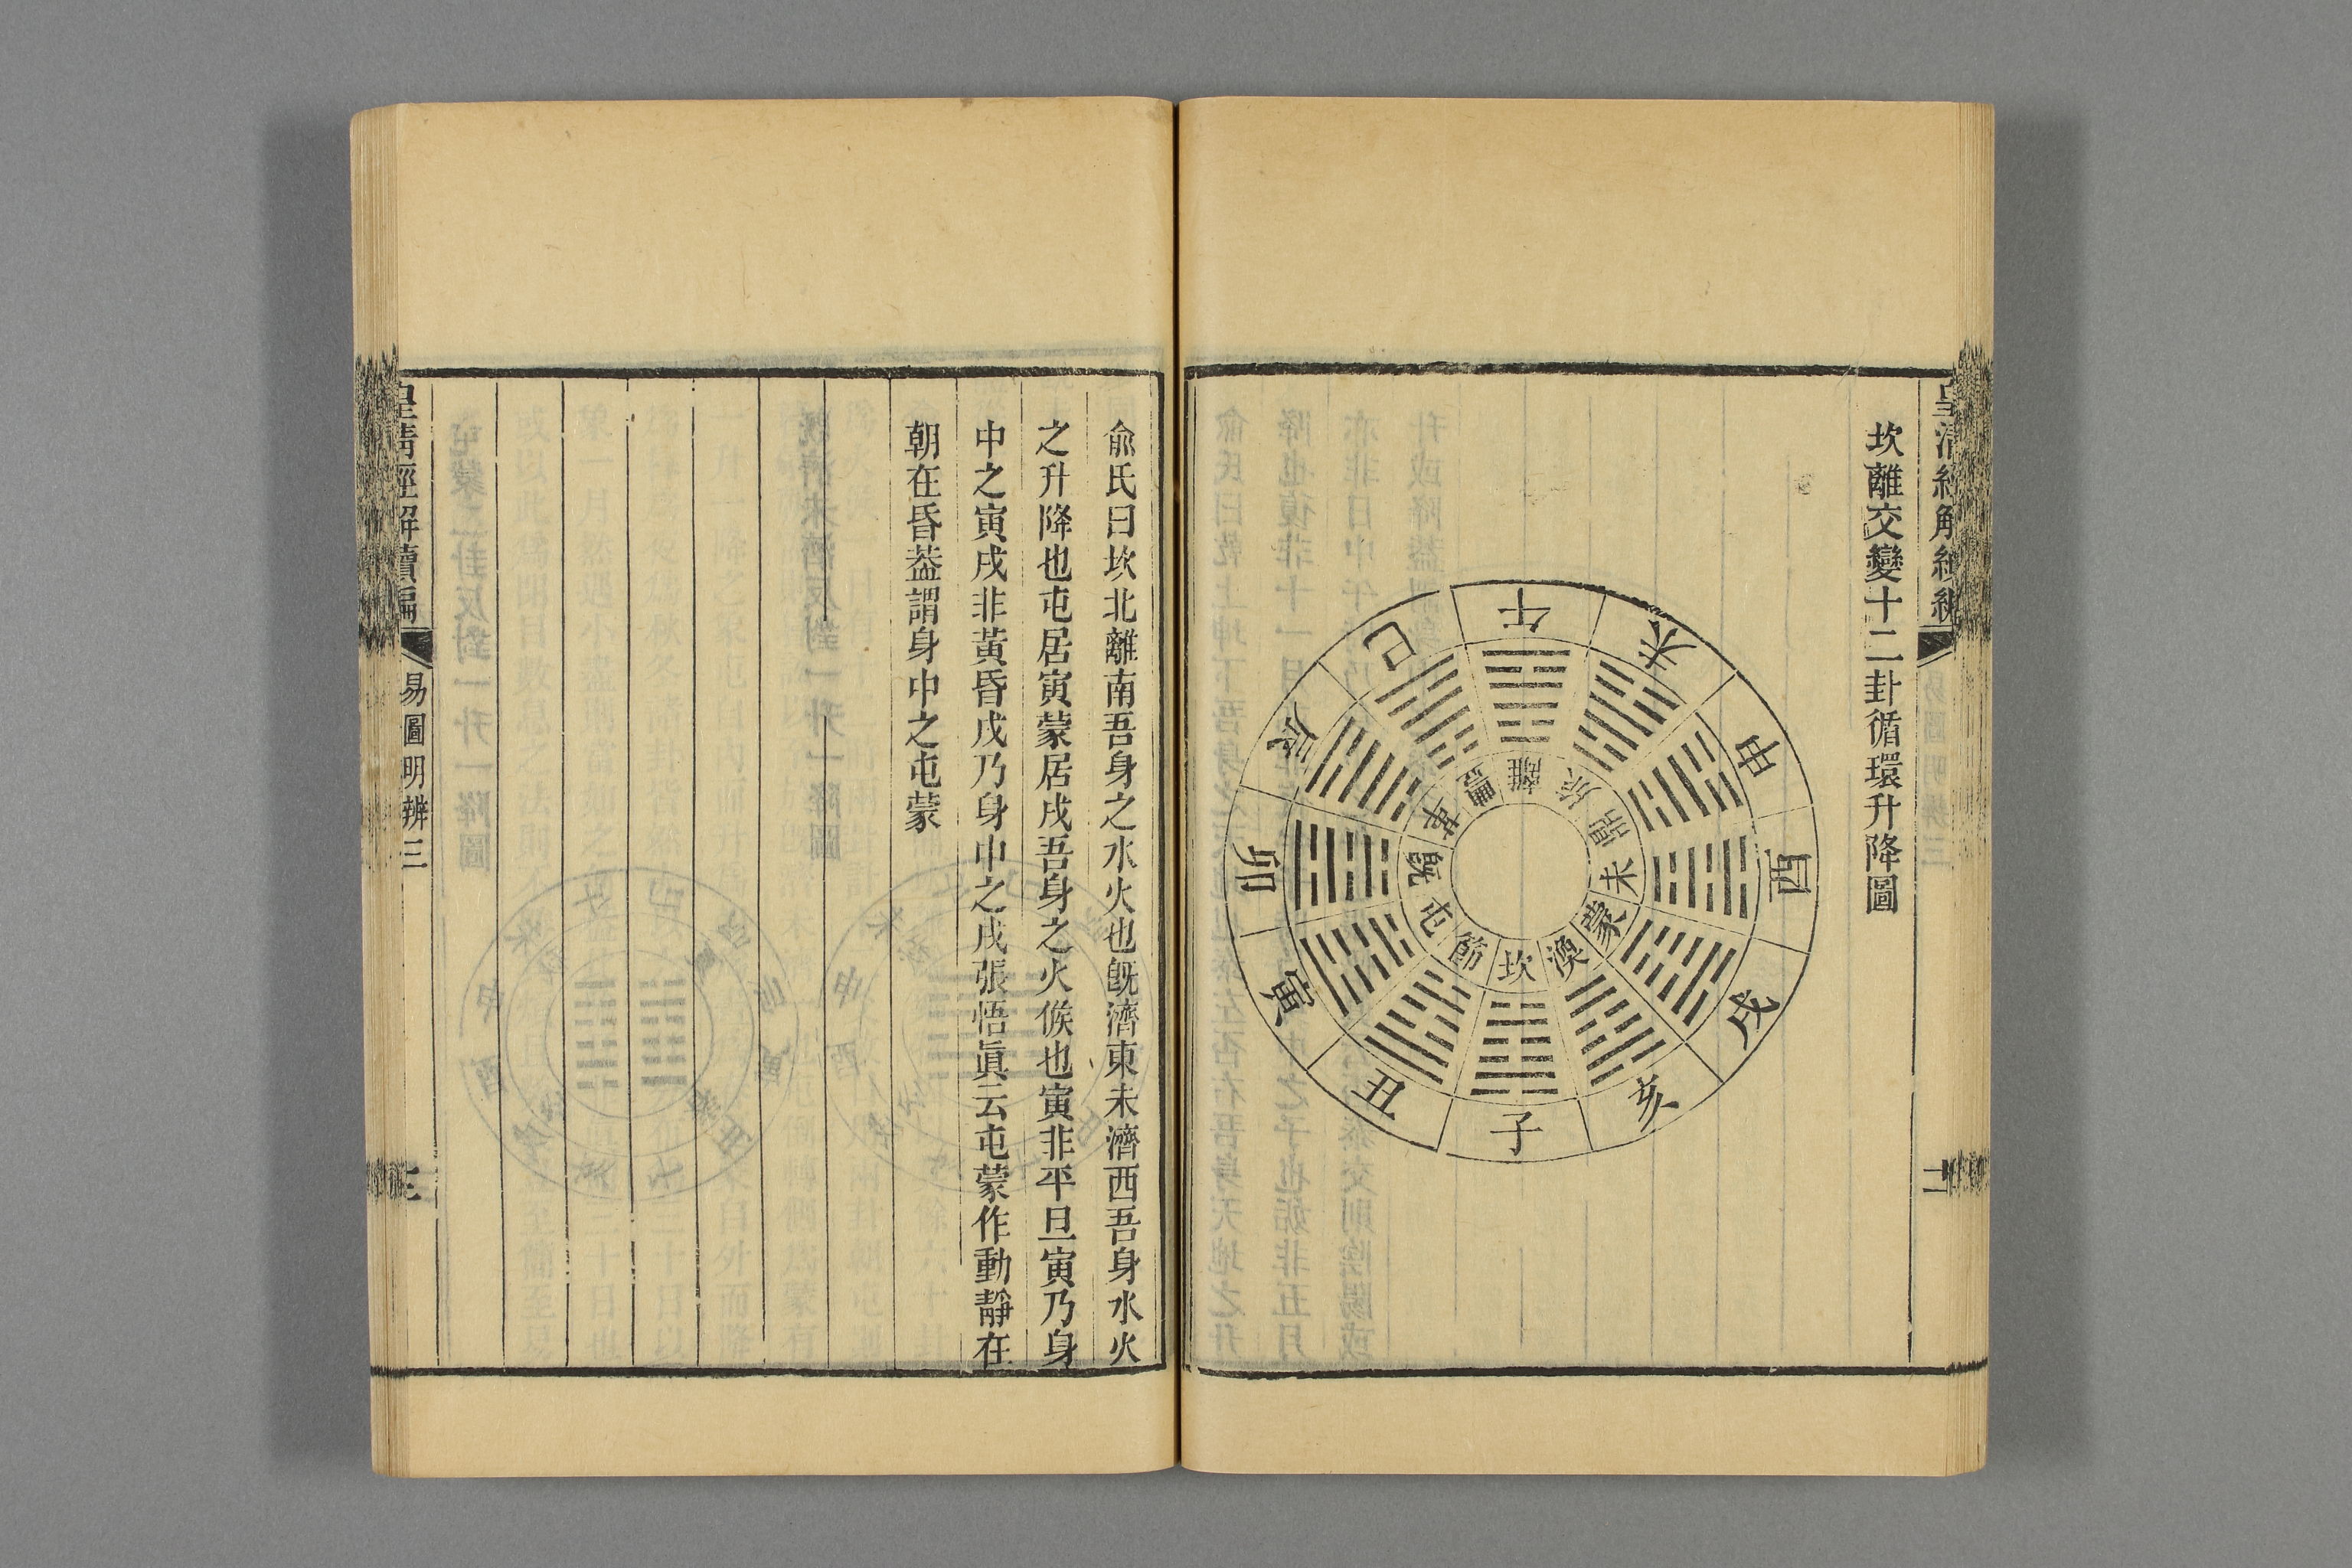 坎離交變十二卦循環升降圖
午
未
申
酉
戌
亥
子
丑
寅
卯
辰
巳
離
旅
鼎
未
蒙
渙
坎
節
屯
旣
革
豐
兪氏曰坎北離南吾身之水火也旣濟東未濟西吾身水火
之升降也屯居寅蒙居戌吾身之火候也寅非平旦寅乃身
中之寅戌非黃昏戌乃身中之戌張悟眞云屯蒙作動靜在
朝在昏葢謂身中之屯蒙
皇清經解續編
易圖明辨三